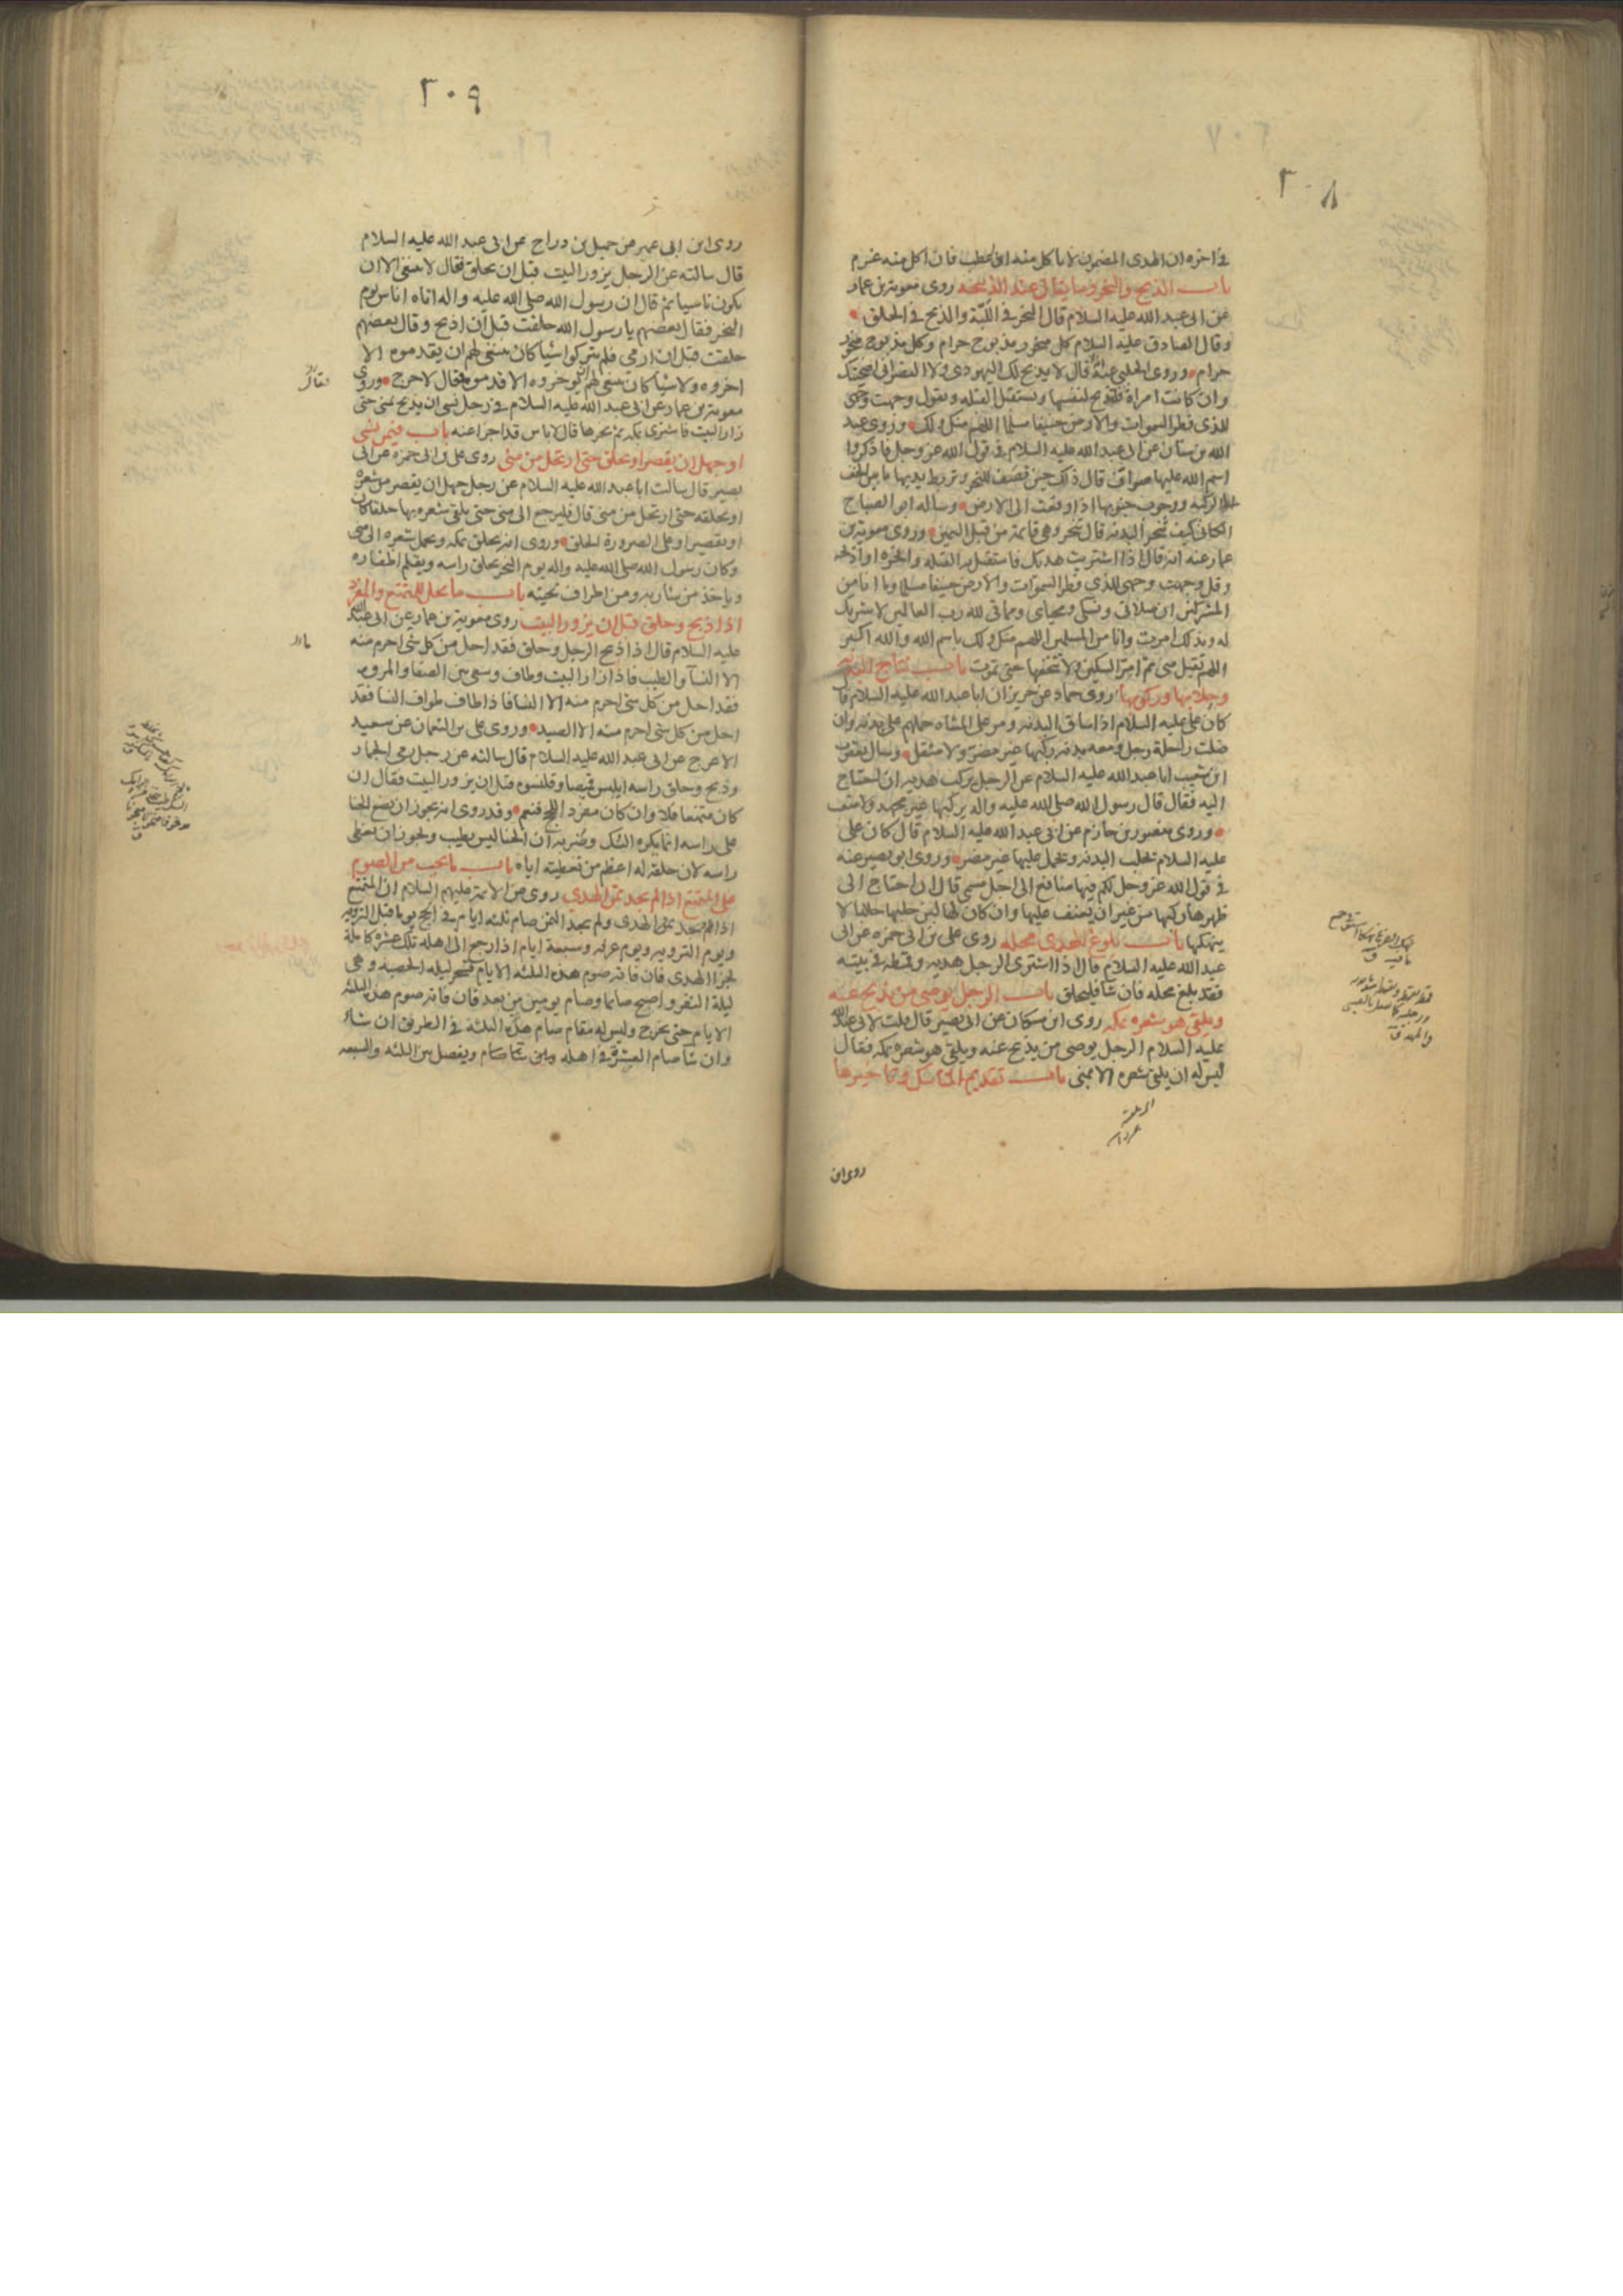 ٣٠٨
في اخره ان الهدى المضمون لا ياكل منه اذا عطب فان اكل منه غرم
باب الذبح والنحر وما يقال عند الذبيحه روى معوية بن عمار
عن ابى عبد الله عليه السلام قال النحر في اللبّة والذبح في الحلق
وقال الصادق عليه السلام كل منحور مذبوح حرام وكل مذبوح منحور
حرام وروى الحلبي عنه قال لا يذبح لك اليهودى ولا النصراني اضحيتك
وان كانت امراة فلتذبح لنفسها وتستقبل القبله وتقول وجهت وجهى
للذى فطر السموات والارض حنيفا مسلما اللهم منك ولك وروى عبد
الله بن سنان عن ابى عبد الله عليه السلام في قول الله عز وجل فاذكروا
اسم الله عليها صوافّ قال ذلك حين تصف للنحر وتربط يديها ما بين الخف
الى الركبه ووجوب جنوبها اذا وقعت الى الارض وساله ابو الصباح
الكنانى كيف تنحر البدنه قال تنحر وهى قائمة من قبل اليمين وروى معوية بن
عمار عنه انه قال اذا اشتريت هديك فاستقبل به القبله وانحره او اذبحه
وقل وجهت وجهى للذى فطر السموات والارض حنيفا مسلما وما انا من
المشركين ان صلاتى ونسكى ومحياى ومماتى لله رب العالمين لا شريك
له وبذلك امرت وانا من المسلمين اللهم منك ولك باسم الله والله اكبر
اللهم تقبل منى ثم امرّ السكين ولا تنخعها حتى تموت باب نتاج البدنه
وحلابها وركوبها روى حماد عن حريز ان ابا عبد الله عليه السلام قال
كان على عليه السلام اذا ساق البدنه ومر على المشاه حملهم على بدنه وان
ضلت راحلة رجل ومعه بدنه ركبها غير مضر ولا مثقل وسال يعقوب
ابن شعيب ابا عبد الله عليه السلام عن الرجل يركب هديه ان احتاج
اليه فقال قال رسول الله صلى الله عليه واله يركبها غير مجهد ولا متعب
وروى منصور بن حازم عن ابى عبد الله عليه السلام قال كان على
عليه السلام يحلب البدنه ويحمل عليها غير مضر وروى ابو بصير عنه
في قول الله عز وجل لكم فيها منافع الى اجل مسمى قال ان احتاج الى
ظهرها ركبها من غير ان يعنف عليها وان كان لها لبن حلبها حلابا لا
ينهكها باب بلوغ الهدى محله روى على بن ابى حمزه عن ابى
عبد الله عليه السلام قال اذا اشترى الرجل هديه وقمطه في بيته
فقد بلغ محله فان شا فليحلق باب الرجل يوصى من يذبح عنه
ويلقى هو شعره بمكه روى ابن مسكان عن ابى بصير قال قلت لابى عبد الله
عليه السلام الرجل يوصى من يذبح عنه ويلقى هو شعره بمكه فقال
ليس له ان يلقى شعره الا بمنى باب تقديم المناسك وتاخيرها
روى ابن
٣٠٩
روى ابن ابى عمير عن جميل بن دراج عن ابى عبد الله عليه السلام
قال سالته عن الرجل يزور البيت قبل ان يحلق فقال لا ينبغى الا ان
يكون ناسيا ثم قال ان رسول الله صلى الله عليه واله اتاه اناس يوم
النحر فقال بعضهم يا رسول الله حلقت قبل ان اذبح وقال بعضهم
حلقت قبل ان ارمى فلم يتركوا شيا كان ينبغى لهم ان يقدموه الا
اخروه ولا شيا كان ينبغى لهم ان يوخروه الا قدموه فقال لا حرج وروى
معوية بن عمار عن ابى عبد الله عليه السلام في رجل نسى ان يذبح بمنى حتى
زار البيت فاشترى بمكه ثم نحرها قال لا باس قد اجزا عنه باب فيمن نسى
او جهل ان يقصر او يحلق حتى ارتحل من منى روى على بن ابى حمزه عن ابى
بصير قال سالت ابا عبد الله عليه السلام عن رجل جهل ان يقصر من شعره
او يحلقه حتى ارتحل من منى قال فليرجع الى منى حتى يلقى شعره بها حلقا كان
او تقصيرا وعلى الصرورة الحلق وروى انه يحلق بمكه ويحمل شعره الى منى
وكان رسول الله صلى الله عليه واله يوم النحر يحلق راسه ويقلم اظفاره
وياخذ من شاربه ومن اطراف لحيته باب ما يحل للمتمتع والمفرد
اذا ذبح وحلق قبل ان يزور البيت روى معوية بن عمار عن ابى عبد الله
عليه السلام قال اذا ذبح الرجل وحلق فقد احل من كل شى احرم منه
الا النسآ والطيب فاذا زار البيت وطاف وسعى بين الصفا والمروه
فقد احل من كل شى احرم منه الا النسا فاذا طاف طواف النسا فقد
احل من كل شى احرم منه الا الصيد وروى على بن النعمان عن سعيد
الاعرج عن ابى عبد الله عليه السلام قال سالته عن رجل رمى الجمار
وذبح وحلق راسه ايلبس قميصا وقلنسوه قبل ان يزور البيت فقال ان
كان متمتعا فلا وان كان مفردا للحج فنعم وقد روى انه يجوز ان يضع الحنا
على راسه انما يكره السك وضربه ان الحنا ليس بطيب ويجوز ان يغطى
راسه لان حلقه له اعظم من تغطيته اياه باب ما يجب من الصوم
على المتمتع اذا لم يجد ثمن الهدى روى عن الائمه عليهم السلام ان المتمتع
اذا وجد الهدى ولم يجد الثمن صام ثلثه ايام في الحج يوما قبل الترويه
ويوم الترويه ويوم عرفه وسبعة ايام اذا رجع الى اهله تلك عشره كامله
لجزا الهدى فان فاته صوم هذه الثلثه الايام تسحر ليله الحصبه وهى
ليلة النفر واصبح صائما وصام يومين من بعد فان فاته صوم هذه الثلثه
الايام حتى يخرج وليس له مقام صام هذه الثلثة في الطريق ان شاء
وان شا صام العشرة في اهله ويفصل بين الثلثه والسبعه